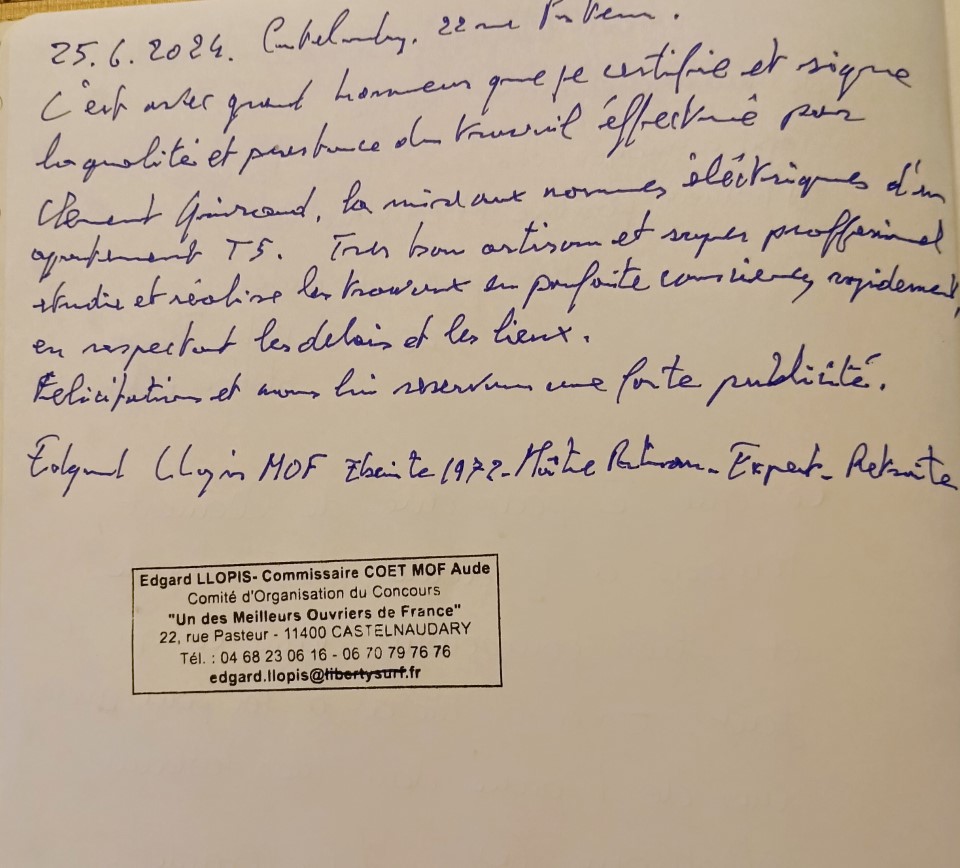 25.6.2024. Castelnaudary, 22 rue Pasteur.
C'est avec grand honneur que je certifie et signe
la qualité et prestance du travail éffectué pour
Clement , la mise aux normes éléctriques d'un
apartement T5. Tres bon artisan et super proffesionnel
etudie et réalise les travaux en parfaite conscience, rapidement,
en respectant les delais et les lieux.
Felicitations et nous lui reservons une forte publicité.
Edgard Llopis MOF 1972 - Maître Artisan - Expert - Retraite
Edgard LLOPIS- Commissaire COET MOF Aude
Comité d'Organisation du Concours
"Un des Meilleurs Ouvriers de France"
22, rue Pasteur - 11400 CASTELNAUDARY
Tél. : 04 68 23 06 16 - 06 70 79 76 76
edgard.llopis@libertysurf.fr